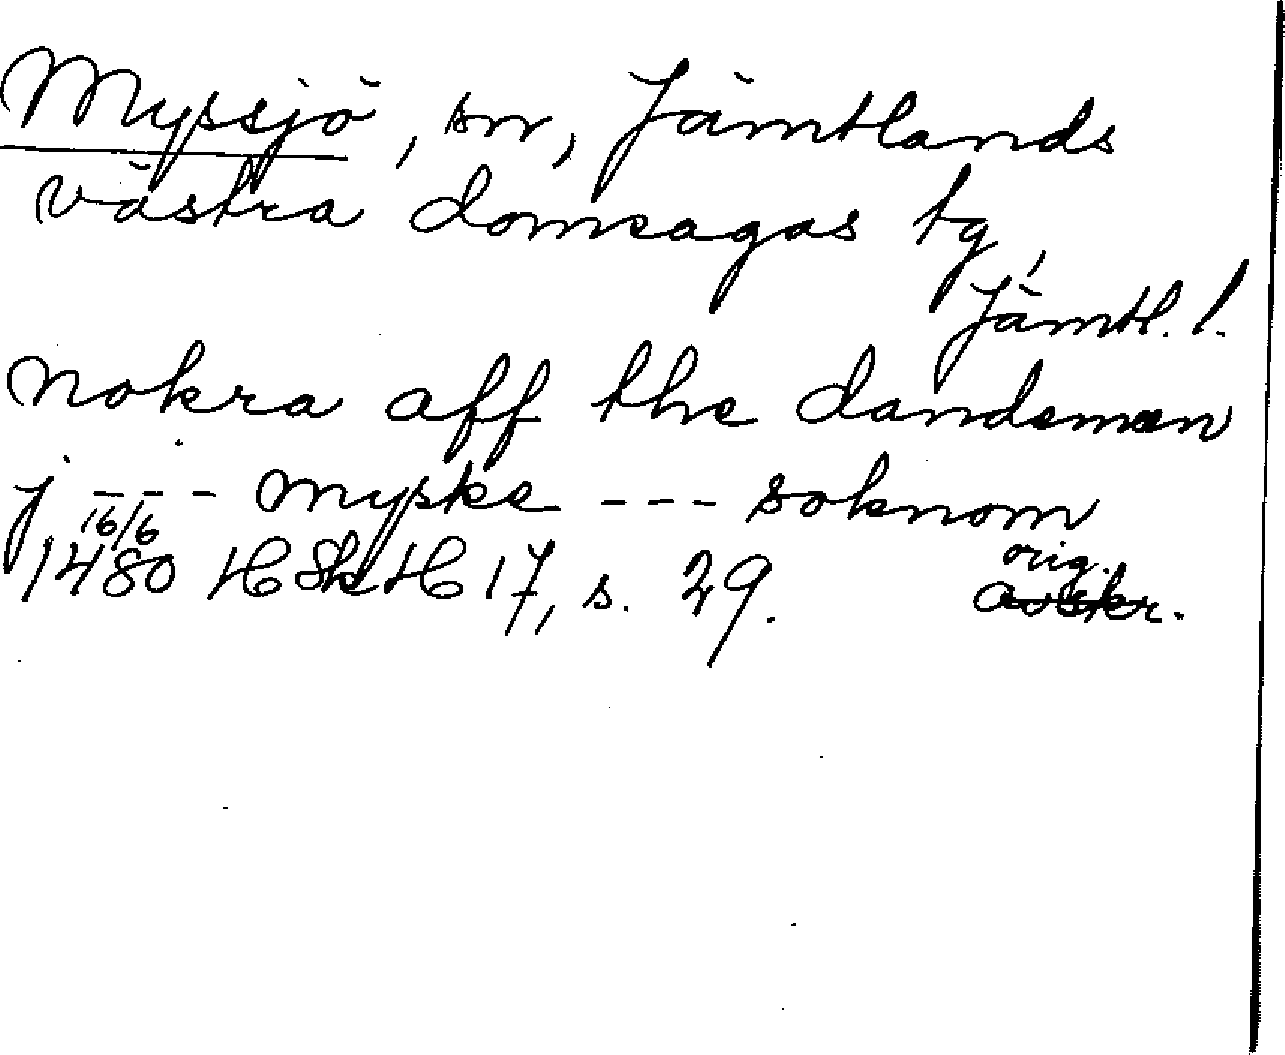 Myssjö, sn, Jämtlands
västra domsagas tg,
Jämtl. l.
nokra aff the dandemæn
j --- myske --- soknom
16/6
1480 HSkH 17, s. 29. orig.
avskr.